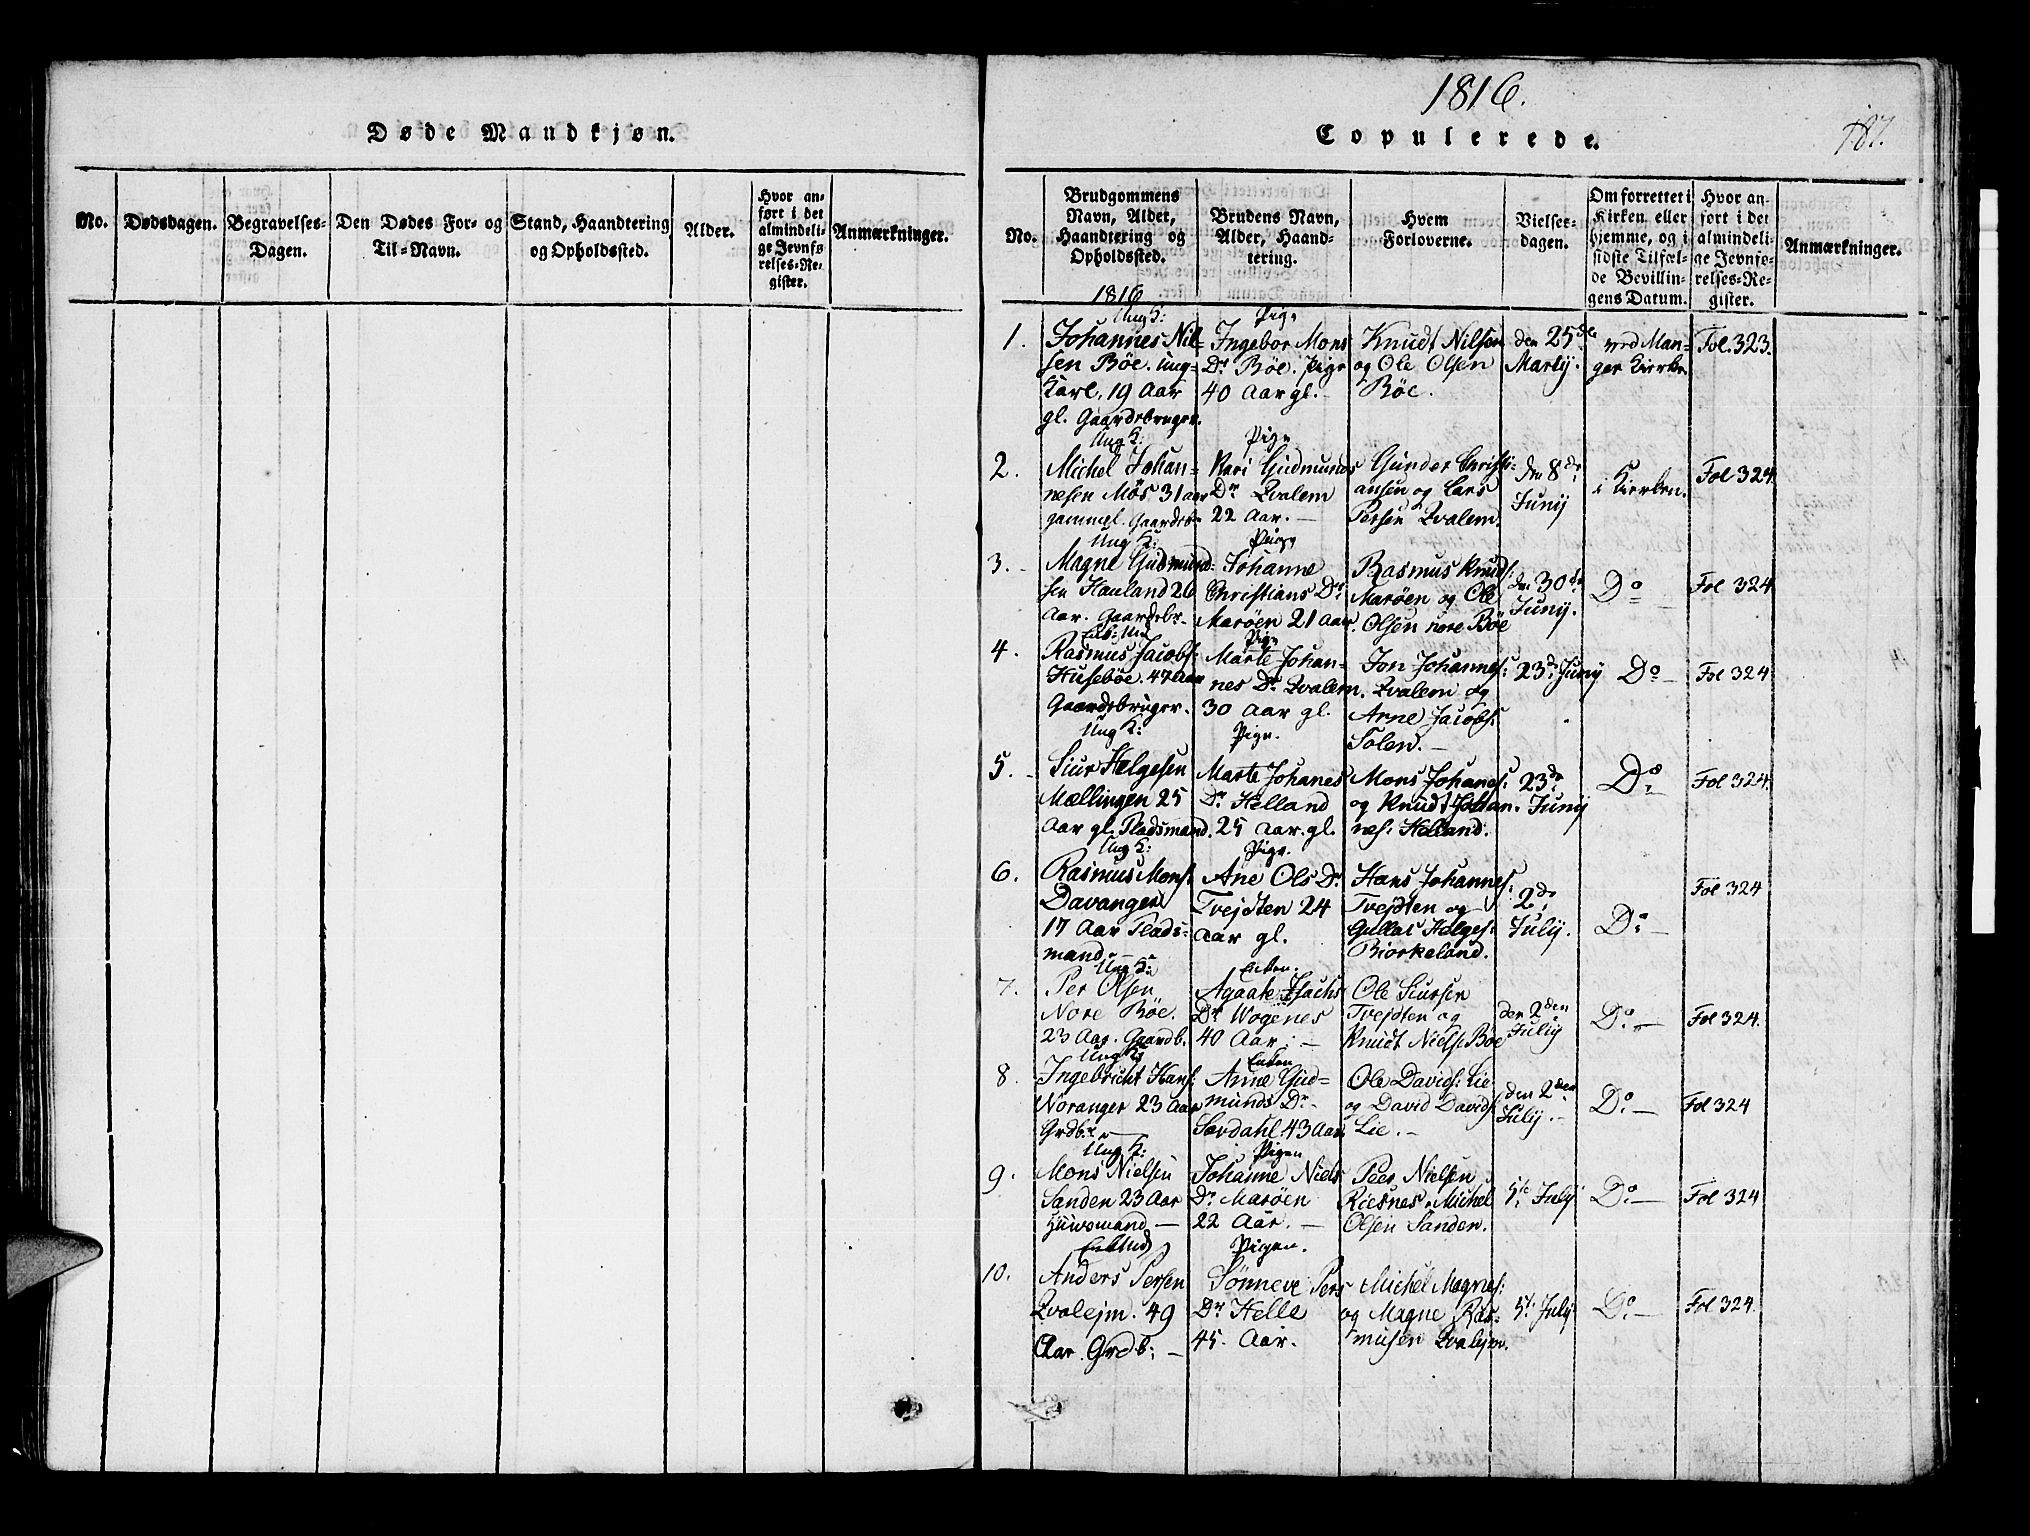 Døde Mandkjøn.
No.
Dødsdagen.
Begravelses-
Dagen.
Den Dødes For- og
Til-Navn.
Stand, Haandtering
og Opholdssted.
Alder.
Hvor an-
ført i det
almindeli-
ge Jevnfø-
relses-Re-
gister.
Anmærkninger.
1816.
Copulerede.
187.
No.
Brudgommens
Navn, Alder,
Haandtering og
Opholdssted.
Brudens Navn,
Alder, Haand-
tering.
Hvem
Forloverne.
Vielses-
dagen.
Om forrettet i
Kirken eller
hjemme, og i
sidste Tilfæl-
de Bevillin-
gens Datum.
Hvor an-
ført i det
almindeli-
ge Jevnfø-
relses-Re-
gister.
Anmærkninger.
1816
1.
Ung K:
Johannes Nil-
sen Böe. ung-
Karl, 19 Aar
gl. Gaardsbruger.
Pige
Ingebor Mons
Dr Böe. Pige
40 Aar gl.
Knudt Nilsen
og Ole Olsen
Böe.
den 25de
Martij.
ved Man-
ger Kierke
Fol. 323.
2.
Ung K:
Michel Johan-
nesen Møs 31 aar
gammel. Gaardsb-
Pige
Kari Gudmunds
Dr Qvalem
22 Aar. —
Gunder Christi-
ansen og Lars
Persen Qvalem.
den 8de
Junij
i Kierken.
Fol 324.
3.
Ung K:
Magne Gudmund-
sen Hauland 26
Aar. Gaardsbr-
Pige
Johanne
Christians Dr
Marøen 21 Aar.
Rasmus Knuds:
Marøen og Ole
Olsen nore Böe
den 30te
Junij.
Do
Fol 324
4.
Enk: Md
Rasmus Jacobs:
Husebøe. 47 Aar
Gaardsbruger.
Pige
Marte Johan-
nes Dr Qvalem.
30 Aar gl.
Jon Johannes:
Qvalem og
Arne Jacobs:
Solem. —
23de Junij
Do —
Fol 324
5.
Ung K:
Siur Helgesen
Mællingen 25
Aar gl. Pladsmand.
Pige.
Marte Johanes
Dr Helland
25 Aar. gl.
Mons Johanes:
og Knudt Johan-
nes: Helland.
23de
Junij
Do
Fol 324.
6.
Ung K:
Rasmus Mons:
Davanger
17 Aar Plads-
mand. —
Pige.
Ane Ols Dr
Tvejdten 24
Aar gl.
Hans Johannes:
Tvejdten og
Gullas Helges:
Biorkeland.
2de
July.
Do —
Fol 324
7.
Ung K:
Per Olsen
Nore Böe.
23 Aar. Gaardb.
Enken.
Agaate Isachs
Dr Wogenes
40 Aar. —
Ole Siursen
Tvejdten og
Knudt Niels: Böe
den 2den
Julij
Do —
Fol 324.
8.
Ung K:
Ingebricht Hans:
Noranger 23 Aar
Grdbr —
Enken
Anne Gud-
munds Dr
Sævdahl. 43 Aar.
Ole Davids: Lie
og David Davids:
Lie. —
den 2den
Julij. —
Do —
Fol 324
9.
Ung K:
Mons Nielsen
Sanden 23 Aar
Huusmand —
Pigen
Johanne Niels
Dr Marøen
22 Aar. —
Peer Nielsen
Riesnes Michel
Olsen Sanden.
5te Julij
Do —
Fol 324
10.
Enk Md
Anders Persen
Qvalejm. 49
Aar. Grdb: —
Pigen.
Sønneve Pers
Dr Helle
45. Aar.
Michel Magnes:
og Magne Ras-
musen Qvalejm.
5te Julij
Do —
Fol 324.